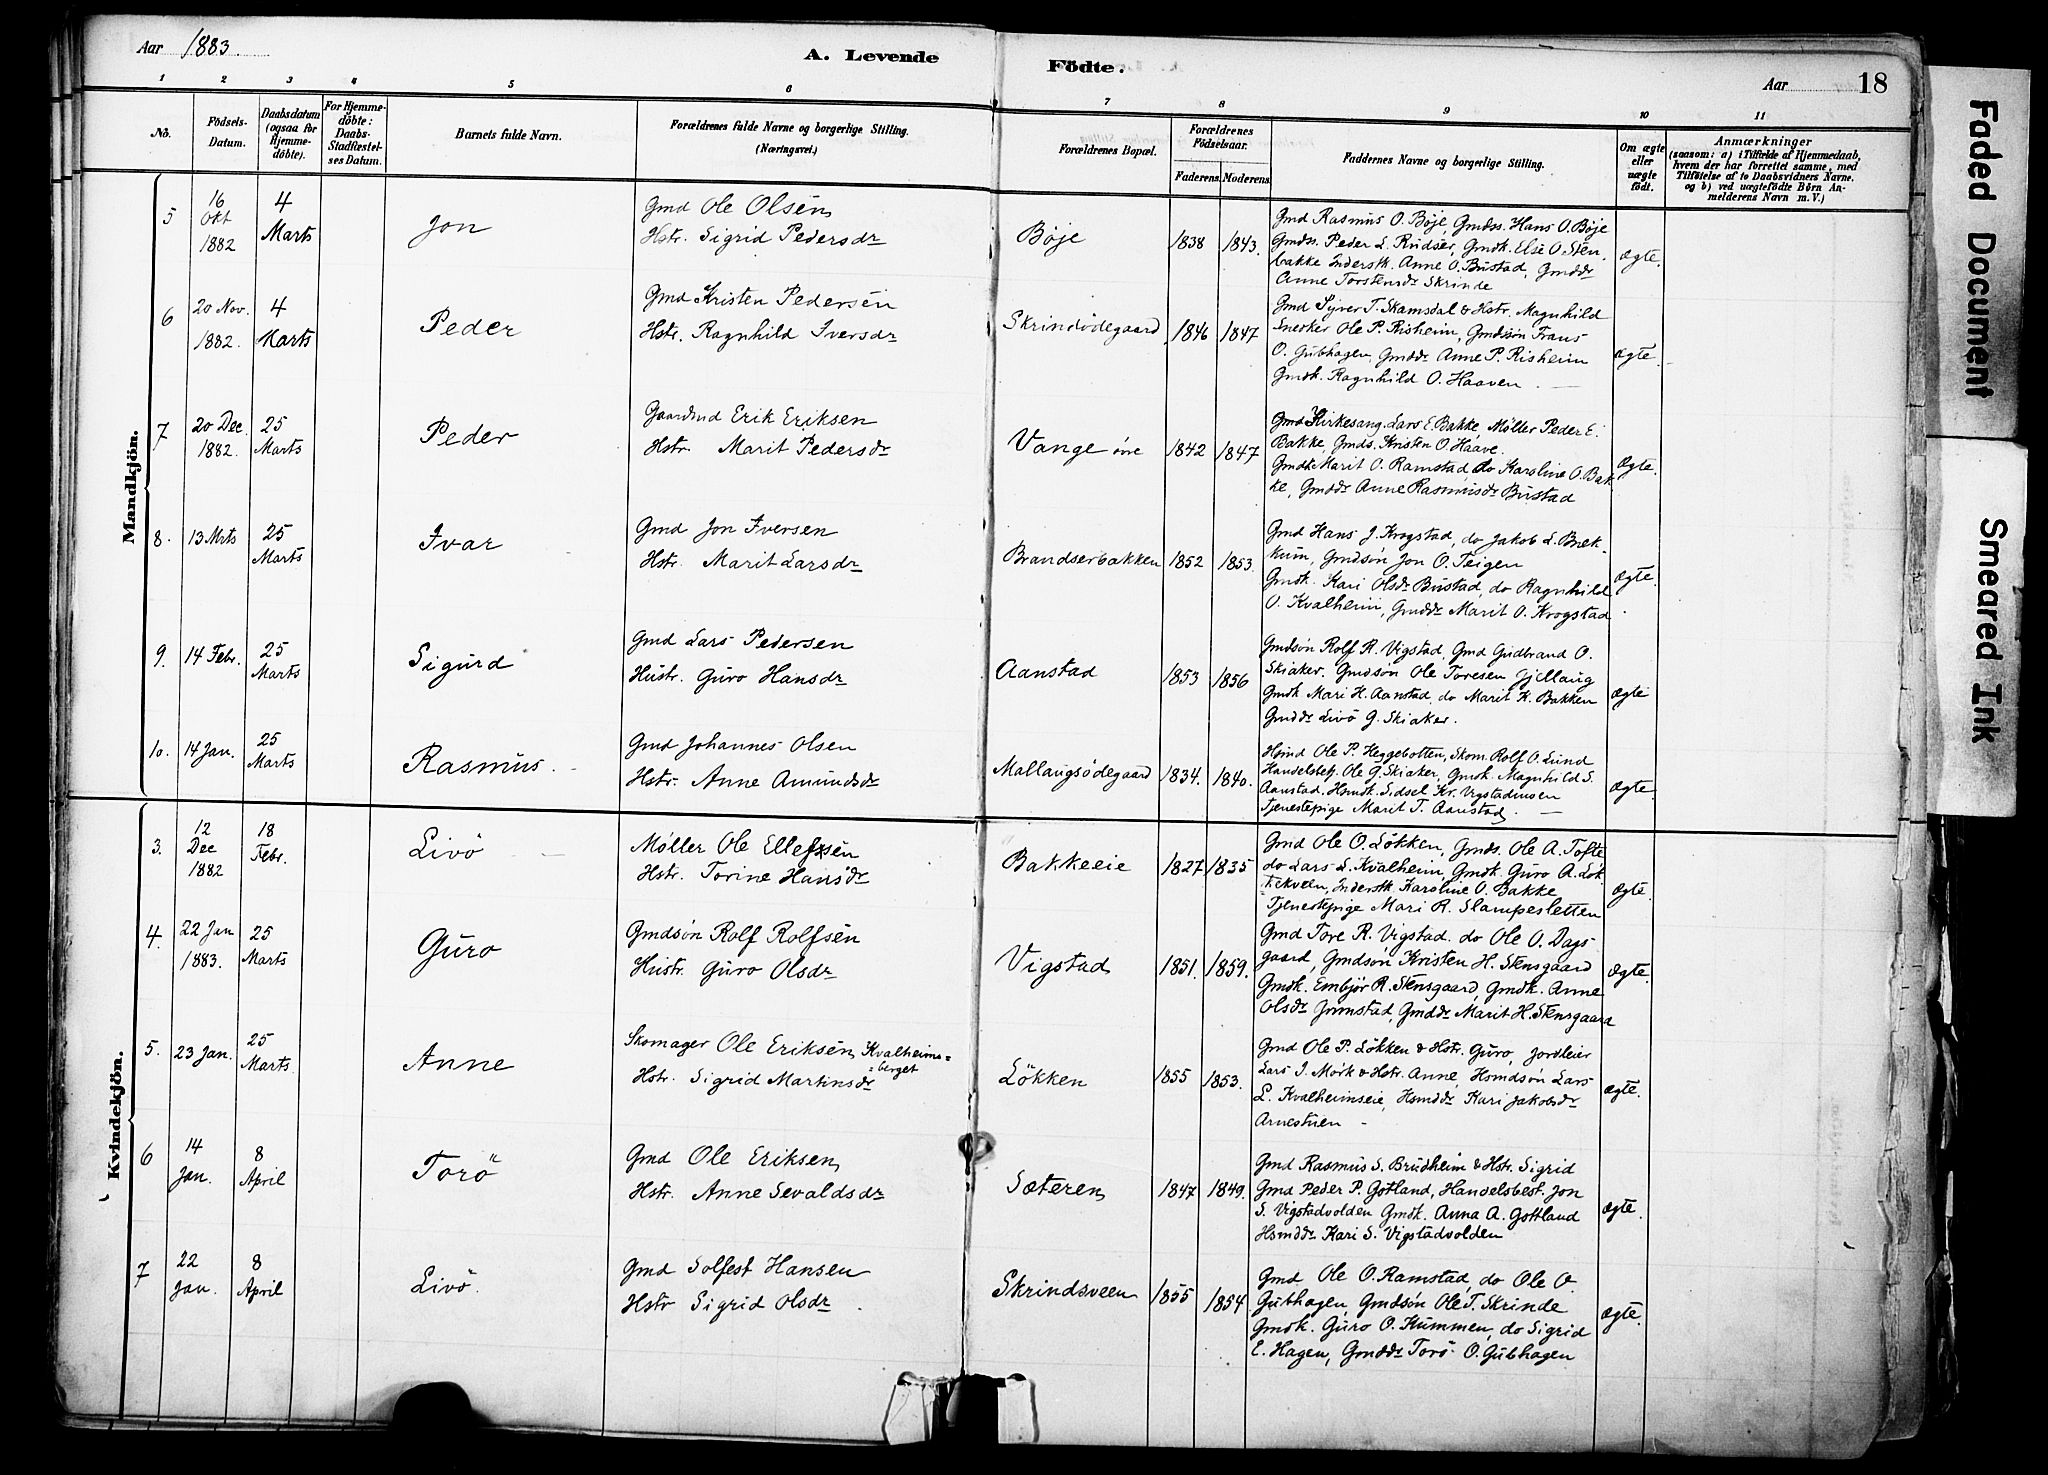 Aar 1883.
A. Levende Födte.
Aar 18
1 2 3 4 5 6 7 8 9 10 11
No.
Födsels-Datum.
Daabsdatum (ogsaa for Hjemme-döbte).
For Hjemme-döbte: Daabs-Stadfæstel-ses Datum.
Barnets fulde Navn.
Forældrenes fulde Navne og borgerlige Stilling.
(Næringsvei.)
Forældrenes Bopæl.
Forældrenes Födselsaar.
Faderens. Moderens.
Faddernes Navne og borgerlige Stilling.
Om ægte eller uægte födt.
Anmærkninger
(saasom: a) i Tilfælde af Hjemmedaab,
hvem der har forrettet samme, med
Tilföielse af to Daabsvidners Navne.
og b) ved uægtefödte Börn An-
melderens Navn m. V.)
Mandkjön.
5 16 Okt 1882 4 Marts Jon
Gmd Ole Olsen
Hstr. Sigrid Pedersdr
Bøje 1838 1843.
Gmd Rasmus O. Bøje, Gmdss. Hans O. Bøje
Gmdss. Peder L. Rudser, Gmdk. Else O. Sten-
bakke Inderstk. Anne O. Bustad, Gmddr
Anne Torstensdr Skrinde
ægte.
6 20 Nov. 1882. 4 Marts Peder
Gmd Kristen Pedersen
Hstr. Ragnhild Iversdr
Skrindødegaard 1846 1847
Gmd Syver T. Skamsdal & Hstr. Magnhild
Snerker Ole P. Risheim, Gmdssøn Frans
O. Gubhagen, Gmddr Anne P. Risheim
Gmdk. Ragnhild O. Haaven
ægte
7 20 Dec. 1882. 25 Marts Peder
Gaardmd Erik Eriksen
Hstr Marit Pedersdr
Vange øvre 1842 1847
Gmd Kirkesang. Lars E. Bakke Møller Peder E.
Bakke, Gmds. Kristen O. Haave.
Gmdk Marit O. Ramstad, do Karoline O. Bak-
ke, Gmddr Anne Rasmusdr Bustad
Ægte.
8. 13 Mrts 25 Marts Ivar
Gmd Jon Iversen
Hstr. Marit Larsdr
Brandserbakken 1852 1853
Gmd Hans J. Krogstad, do Jakob L. Brek-
kum, Gmdsøn Jon O. Teigen
Gmdk. Kari Olsdr Bustad, do Ragnhild
O. Kvalheim, Gmddr Marit O. Krogstad
Ægte.
9. 14 Febr. 25 Marts Sigurd
Gmd Lars Pedersen
Hustr. Guro Hansdr
Aanstad 1853 1856
Gmdsøn Rolf R. Vigstad, Gmd Gudbrand O.
Skiaker. Gmdsøn Ole Toresen Gjellaug
Gmdk Mari H. Aanstad, do Marit K. Bakken
Gmddr Livö G. Skiaker.
Ægte
10. 14 Jan. 25 Marts Rasmus
Gmd Johannes Olsen
Hstr. Anne Amundsdr
Mallaugsödegaard 1834. 1840.
Hsmd Ole P. Heggebotten, Skom. Rolf O. Lund
Handelsbetj. Ole G. Skiaker, Gmdk. Magnhild S.
Aanstad. Hsmdk. Sidsel Kr. Vigstadmoen
Tjenestepige Marit T. Aanstad.
ægte.
Kvindekjön.
3. 12 Dec 1882 18 Febr. Livö
Møller Ole Ellefsen
Hstr. Torine Hansdr
Bakkeeie 1827 1835
Gmd Ole O. Løkken, Gmds. Ole A. Tofte
do Lars L. Kvalheim, Gmdk. Guro A. Løk-
kekveen, Inderstk. Karoline O. Bakke
Tjenestepige Mari R. Slampesletten
Ægte.
4. 22 Jan 1883. 25 Marts Guro
Gmdsön Rolf Rolfsen
Hustr. Guro Olsdr
Vigstad 1851. 1859.
Gmd Tore R. Vigstad. do Ole O. Dags-
gaard, Gmdsøn Kristen H. Stensgaard
Gmdk. Embjör R. Stensgaard, Gmdk. Anne
Olsdr Jvumstad, Gmddr Marit H. Stensgaard
Ægte.
5. 23 Jan. 25 Marts. Anne
Skomager Ole Eriksen Kvalheims-
berget
Hstr. Sigrid Martinsdr
Løkken 1855 1853.
Gmd Ole P. Løkken & Hstr. Guro, Jordleier
Lars J. Mørk & Hstr. Anne, Hsmdsøn Lars
L. Kvalheimseie, Hsmddr Kari Jakobsdr
Arnestuen
Ægte.
6 14 Jan. 8 April Torö
Gmd Ole Eriksen
Hstr. Anne Sevaldsdr
Sæteren 1847 1849.
Gmd Rasmus S. Brudheim & Hstr. Sigrid
Gmd Peder P. Gotland, Handelsbest. Jon
S. Vigstadvolden Gmdk. Anna A. Gottland
Hsmddr Kari S. Vigstadvolden
Ægte.
7 22 Jan. 8 April Livö.
Gmd Solfest Hansen
Hstr Sigrid Olsdr
Skrindsveen 1855 1854
Gmd Ole O. Ramstad, do Ole O.
Gubhagen, Gmdsøn Ole T. Skrinde
Gmdk. Guro O. Kummen, do Sigrid
E. Hagen, Gmddr Torö O. Gubhagen
Ægte.
Faded Document
Smeared Ink